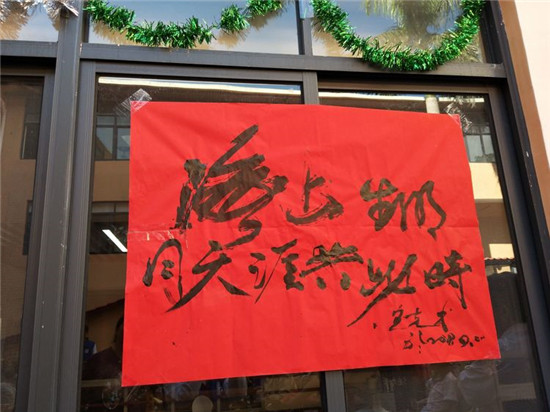 海上生明
月天涯共此時